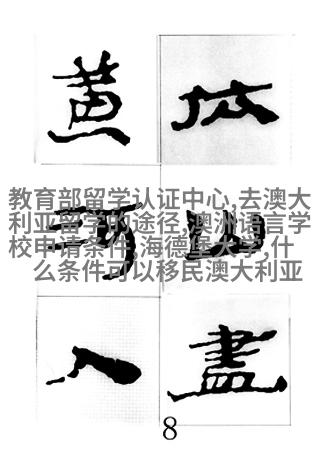 依山盡
黃河入
教育部留学认证中心,去澳大
利亚留学的途径,澳洲语言学
校申请条件,海德堡大学,什
么条件可以移民澳大利亚
8